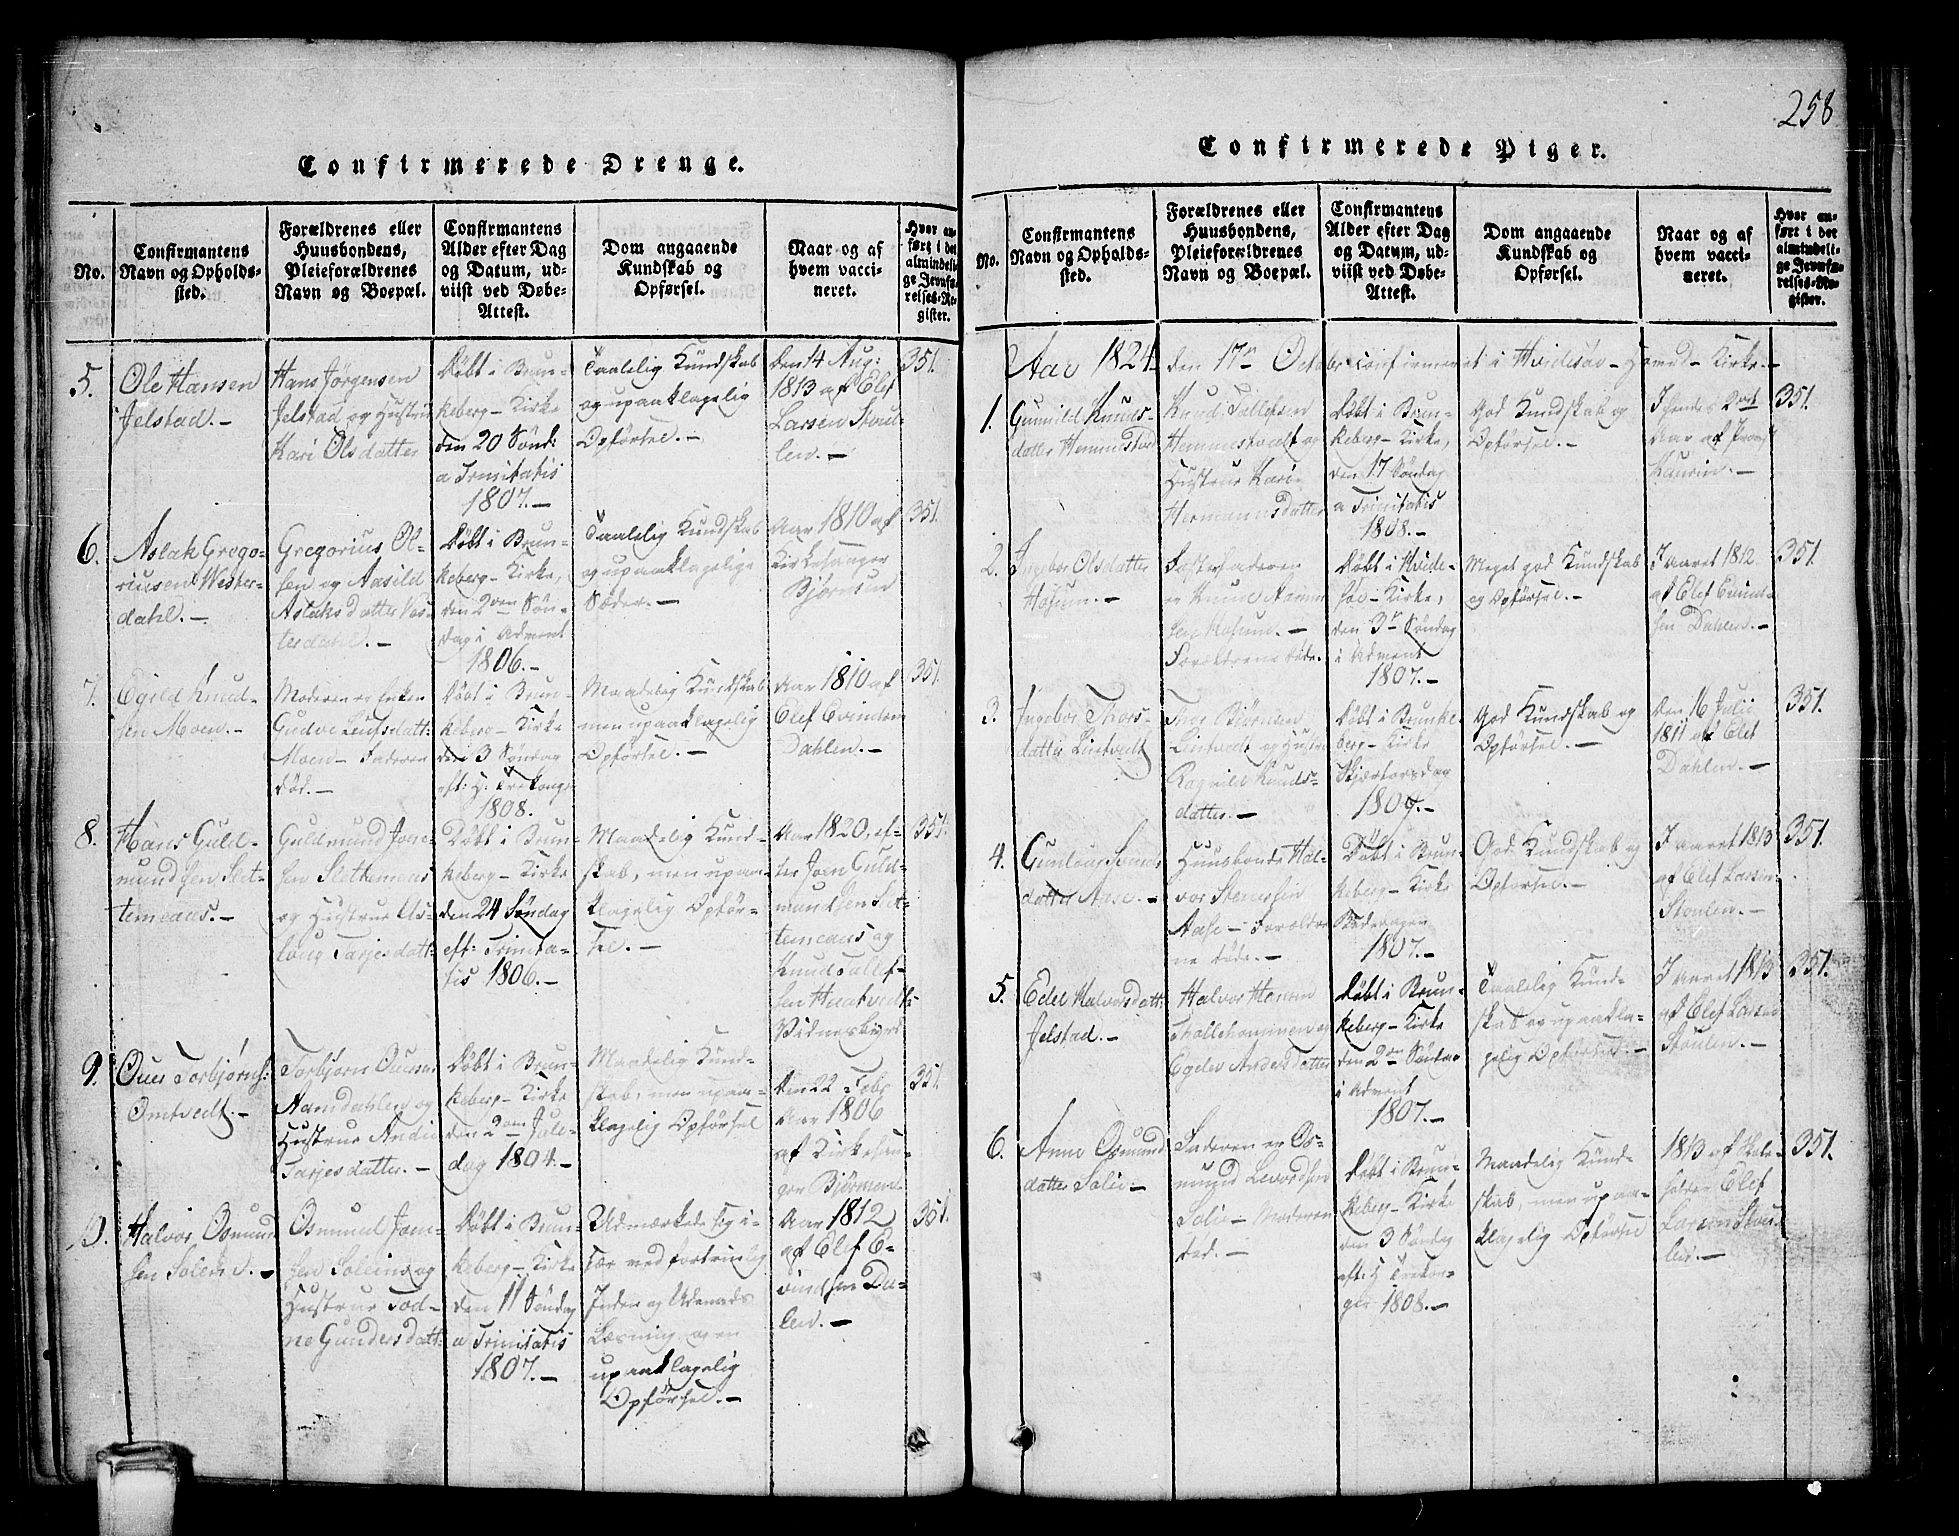 258
Confirmerede Drenge.
No.
Confirmantens
Navn og Opholds-
sted.
Forældrenes eller
Huusbondens,
Pleieforældrenes
Navn og Boepæl.
Confirmantens
Alder efter Dag
og Datum, ud-
viist ved Døbe-
Attest.
Dom angaaende
Kundskab og
Opførsel.
Naar og af
hvem vacci-
neret.
Hvor an-
ført i det
almindeli-
ge Jevnfø-
relses-Re-
gister.
5.
Ole Hansen
Jelstad. –
Hans Jørgensen
Jelstad og Hustrue
Kari Olsdatter
Døbt i Brun-
keberg – Kirke
den 20 Sønd:
a Trinitatis
1807. –
Taalelig Kundskab
og upaaklagelig
Opførsel. –
Den 14 Aug:
1813 af Elef
Larsen Stou-
len. –
351.
6.
Aslak Grego-
riusen Wester-
dahl. –
Gregorius Ol-
sen og Aasild
Aslaksdatter Ves-
terdahl. –
Døbt i Brun-
keberg – Kirke,
den 2den Søn-
dag i Advent
1806. –
Taalelig Kundskab
og upaaklagelige
Sæder. –
Aar 1810 af
Kirkesanger
Bjørnsen
351.
7.
Egild Knud-
sen Moen. –
Moderen er Enken
Moen – Faderen
død. –
Døbt i Brun-
keberg – Kirke
den 3 Søndag
eft: H. Trekonge
1808.
Maadelig Kundskab
men upaaklagelig
Opførsel. –
Aar 1810 af
Elef Evindsen
Dahlen. –
351.
8.
Hans Guld-
mundsen Slet-
temeaas. –
Guldmund Joen-
sen Slettemeaas
og Hustrue As-
laug Tarjesdatt:
Døbt i Brun-
keberg – Kirke
den 24 Søndag
eft: Trinita-
tis 1806. –
Maadelig Kund-
skab, men upaa-
klagelig Opfør-
sel. –
Aar 1820, ef-
ter Joen Guld-
mundsen Slet-
temeaas og
Knud Tallef-
sen
Vidnesbyrd
351.
9.
Oues Torbjørns:
Omtvedt. –
Torbjørn Ouesen
Aamdahlen og
Hustrue
Tarjesdatter. –
Døbt i Brun-
keberg – Kirke
den 2den Jule-
dag 1804. –
Maadelig Kund-
skab, men upaa-
klagelig Opførsel
Den 22 Febr
Aar 1806
af Kirkesan-
ger Bjørnsen
351.
Halvor Osmund
sen
Osmund Jam-
sen og
Hustrue Tod-
ne Gundersdatt:
Døbt i Brun-
keberg – Kirke
den 11 Søndag
a Trinitatis
1807. –
Udmærkede sig i-
sær ved fortrinlig
Inden og Udenads
Læsning, og en
upaaklagelig
Opførsel. –
Aar 1812
af Elef E-
vindsen Da-
len. –
351.
Confirmerede Piger.
No.
Confirmantens
Navn og Opholds-
sted.
Forældrenes eller
Huusbondens,
Pleieforældrenes
Navn og Boepæl.
Confirmantens
Alder efter Dag
og Datum, ud-
viist ved Døbe-
Attest.
Dom angaaende
Kundskab og
Opførsel.
Naar og af
hvem vacci-
neret.
Hvor an-
ført i det
almindeli-
ge Jevnfø-
relses-Re-
gister.
Aar 1824 den 17de October confirmeret i Hvidesøe – Hoved – Kirke. –
1.
Gunnild Knuds-
datter Hemmestvedt
Knud Tallefsen
Hemmestvedt og
Hustrue Kari
Hermannsdatter
Døbt i Brun-
keberg – Kirke,
den 17 Søndag
a Trinitatis
1808. –
God Kundskab og
Opførsel. –
I hendes 2det
Aar af Provst
Laurin. –
351.
2.
Ingebor Olsdatter
Hosum. –
er Knud
sen Hosum. –
Forældrene døde.
Døbt i Hvide-
søe – Kirke,
den 3de Søndag
i Advent
1807. –
Meget god Kundskab
og Opførsel. –
I aaret 1812
af Elef Evind-
sen Dahlen. –
351.
3.
Ingebor Thors-
datter Lintvedt
Thor Bjørnsen
Lintvedt og Hustrue
Ragnild Knuds-
datter. –
Døbt i Brunke-
berg – Kirke
Skjærtorsdag
God Kundskab og
Opførsel. –
Den 16 Julii
1811 af Elef
Dahlen. –
351.
4.
datter Aase. –
Huusbonde Hal-
vor Stenersen
Aase – Forældre-
ne døde. –
Døbt i Brun-
keberg – Kirke
1807. –
God Kundskab og
Opførsel. –
I aaret 1813
af Elef Larsen
Stoulen. –
351.
5.
Edel Halvorsdatt:
Jelstad. –
Halvor Hansen
og
Andersdatter
Døbt i Brun-
keberg – Kirke
den 2den Søndag
i Advent
1807. –
Taalelig Kund-
skab og upaakla-
gelig Opførsel. –
I aaret 1813
af Elef Larsen
Stoulen. –
351.
6.
Anne Osmund
datter Solie –
Faderen er Os-
mund
Solie – Moderen
død. –
Døbt i Brun-
keberg – Kirke
den 3 Søndag
eft: H Trekon-
ger 1808. –
Maadelig Kund-
skab, men upaa-
klagelig Opførsel
1813 af Skole-
holder Elef
Larsen Stou-
len. –
351.